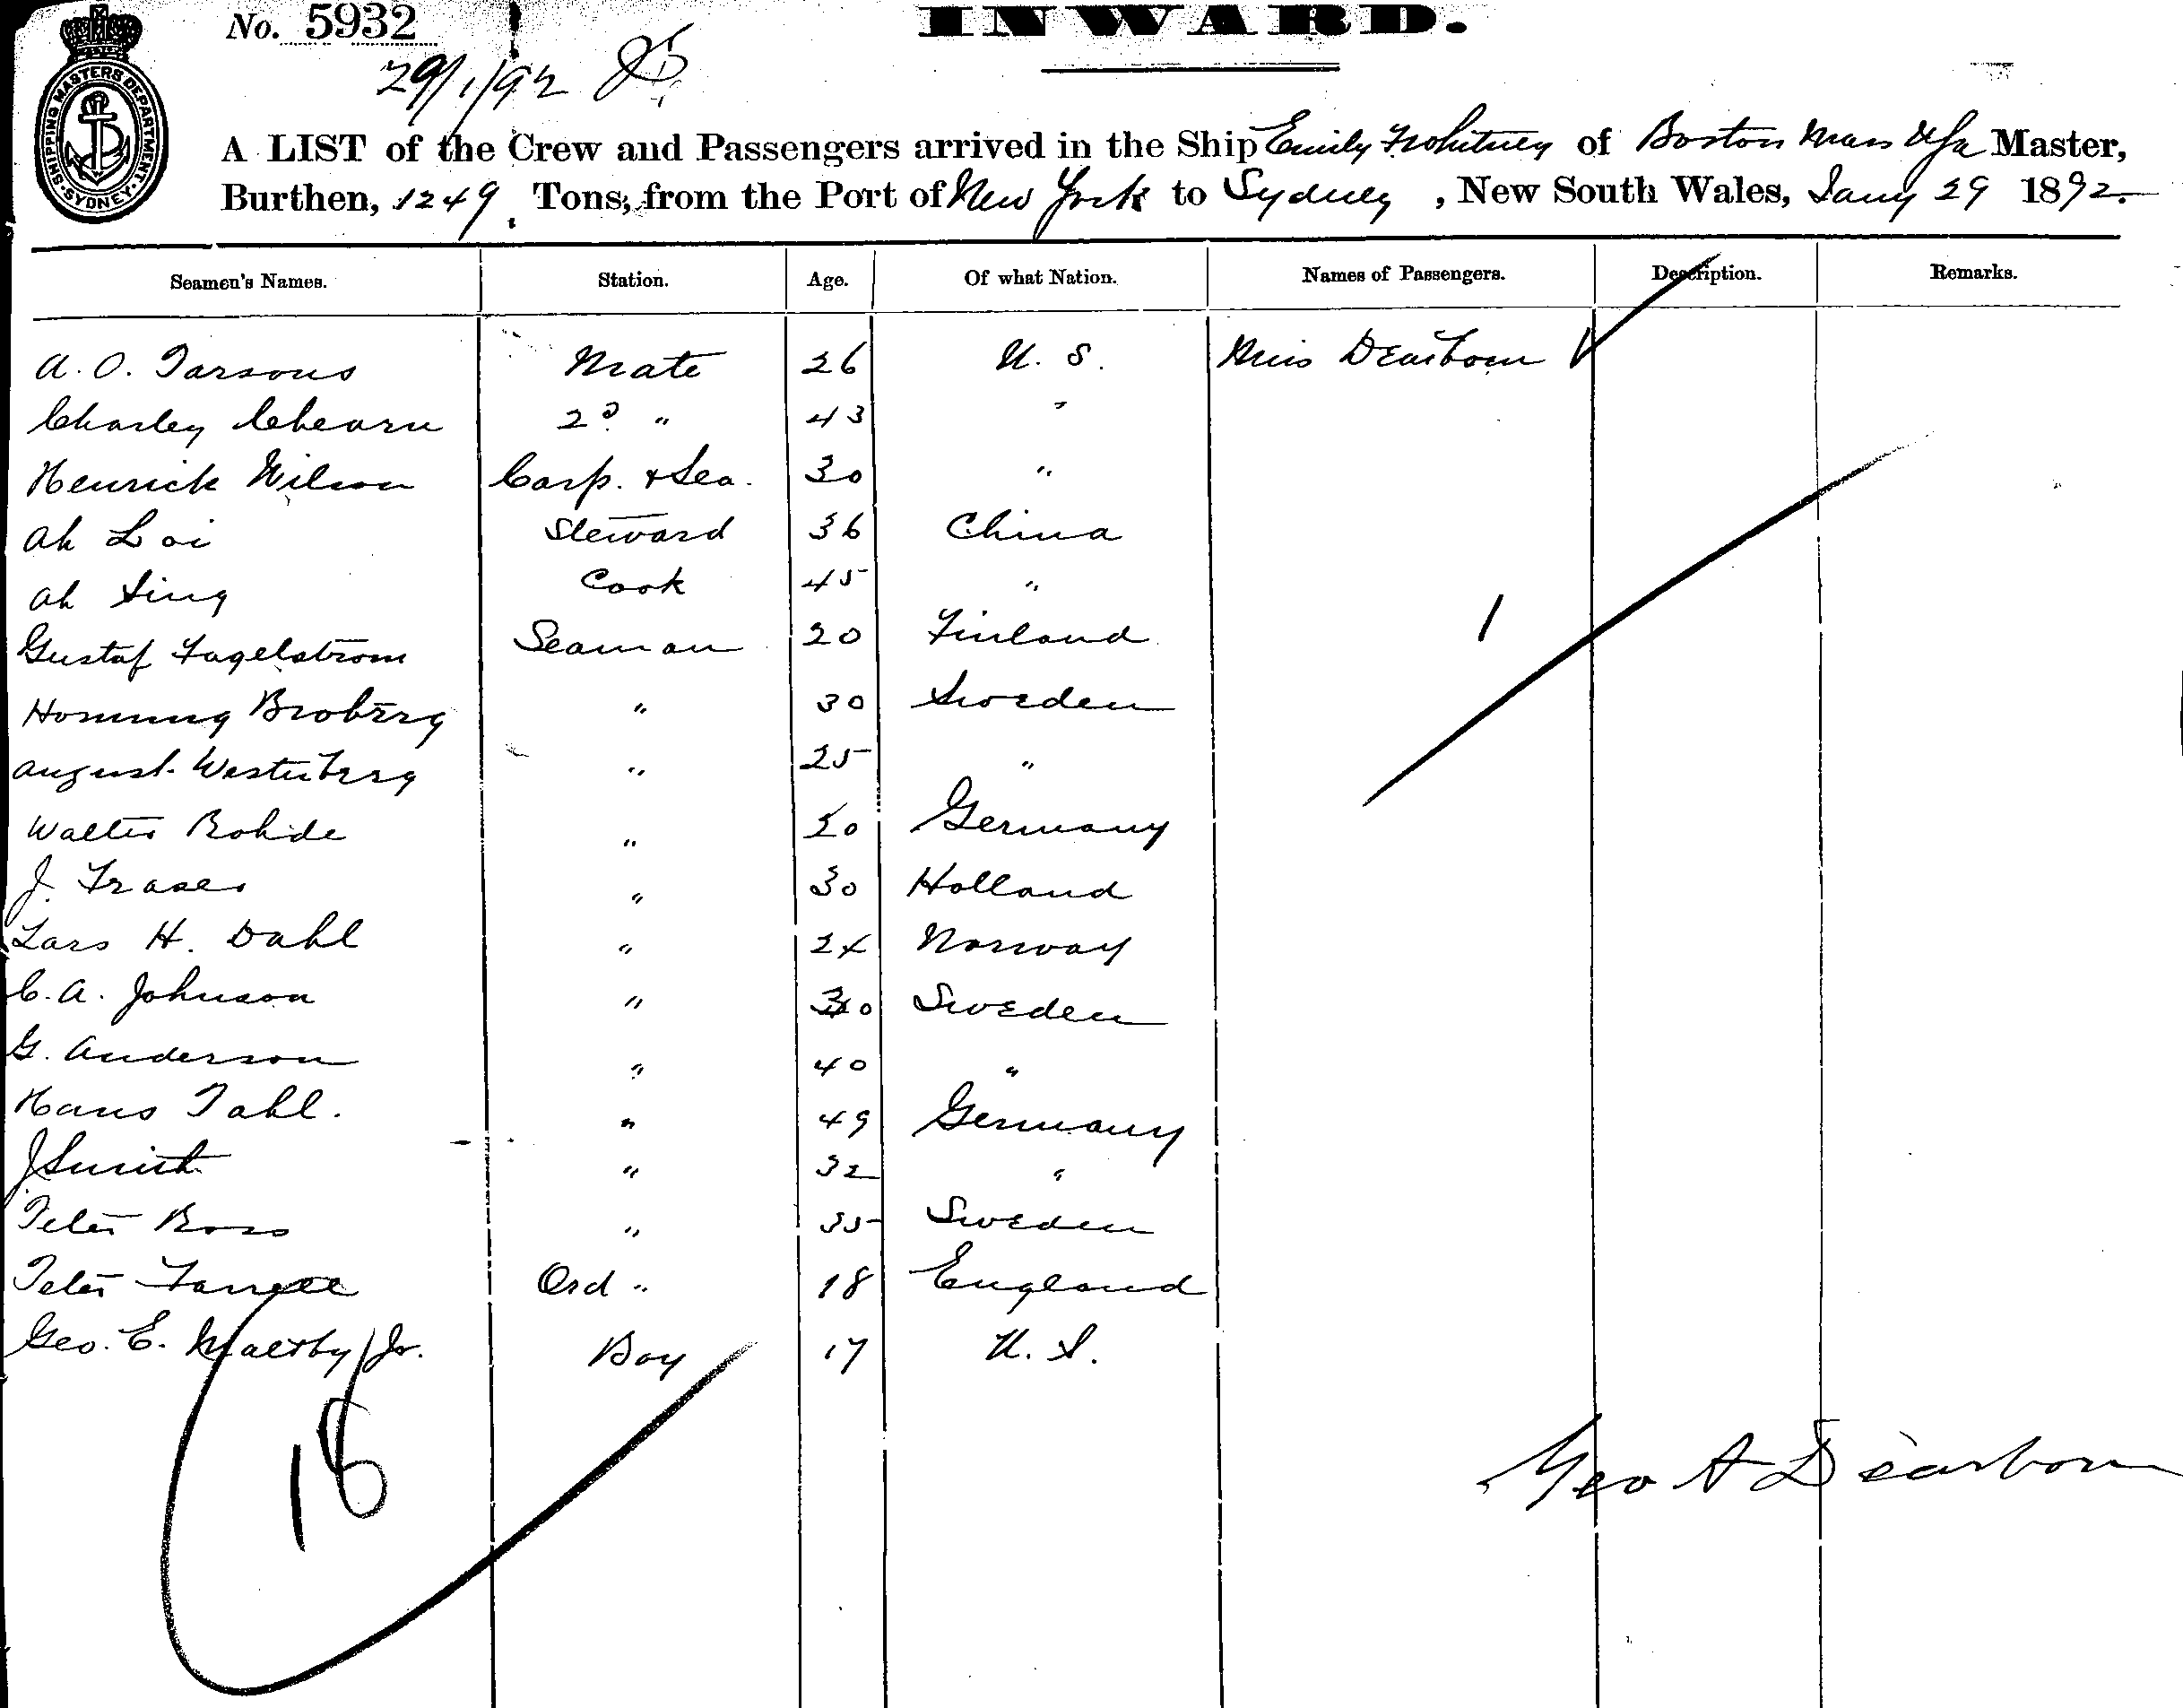 No. 5932
INWARD.
29/1/92
SHIPPING MASTERS DEPARTMENT. SYDNEY.
A LIST of the Crew and Passengers arrived in the Ship Emily F Whitney of Boston Mass USA Master,
Burthen, 1249 Tons, from the Port of New York to Sydney, New South Wales, Jany 29 1892.
Seamen's Names. Station. Age. Of what Nation. Names of Passengers. Description. Remarks.
A. O. Parsons Mate 26 U. S. Miss Dearborn
Charley Chearn 2d " 43 "
Henrick Nilson Carp. & Sea. 30 "
Ah Loi Steward 36 China
Ah Sing Cook 45 "
Gustaf Fagelstrom Seaman 20 Finland 1
Homung Broberg " 30 Sweden
August Westerberg " 25 "
Walter Rohde " 20 Germany
J. Fraser " 30 Holland
Lars H. Dahl " 24 Norway
C. A. Johnson " 30 Sweden
G. Anderson " 40 "
Hans Pahl. " 49 Germany
J Smith " 32 "
Peter Ross " 35 Sweden
Peter Farrell Ord " 18 England
Geo. E. Maltby Jr. Boy 17 U. S.
18
Geo A Dearborn